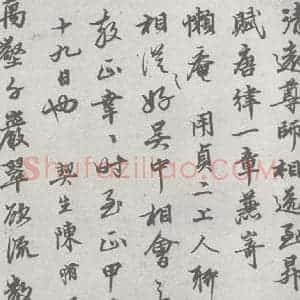 清遠尊師相送至昇
賦唐律一章兼寄
懶庵 用貞二上人聊
相從好吴中相會
教正幸〻時至正甲
十九日也 契生陳
萬壑千巖翠欲流
Shufaziliao.com